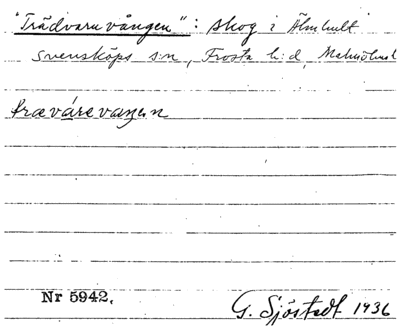 "Trädvaruvången": skog i Älmhult
Svensköps s:n, Frosta h:d, Malmöhus l
trævárevaŋen
Nr 5942.
G. Sjöstedt 1936